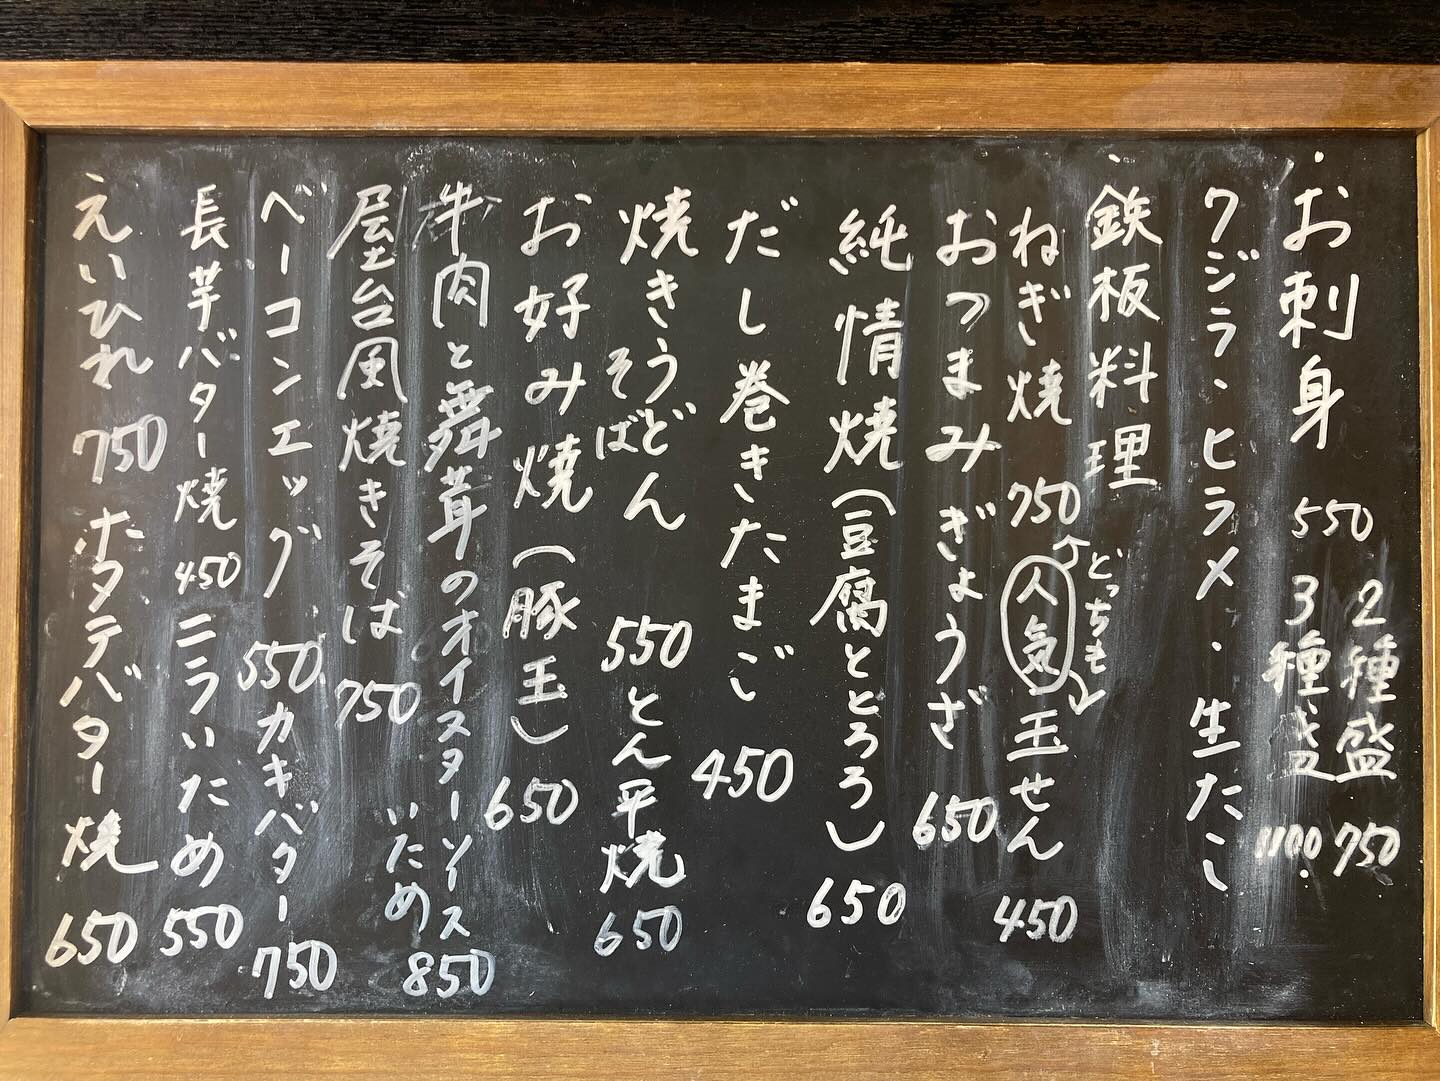 お刺身 550
2種盛 750
3種盛 1100
クジラ・ヒラメ・生たこ
鉄板料理
ねぎ焼 750
どっちも
人気
玉せん 450
おつまみぎょうざ 650
純情焼(豆腐ととろろ) 650
だし巻きたまご 450
焼きうどん
そば
550
とん平焼 650
お好み焼(豚玉) 650
牛肉と舞茸のオイスターソース
いため 850
屋台風焼きそば 750
ベーコンエッグ 550
カキバター 750
長芋バター焼 450
ニラいため 550
えいひれ 750
ホタテバター焼 650